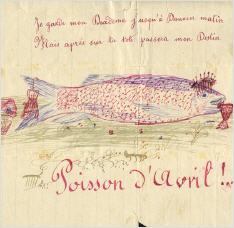 Je garde mon Diadème jusqu'à Demain matin
Mais après sur la tob passera mon Destin
Poisson d'Avril!..